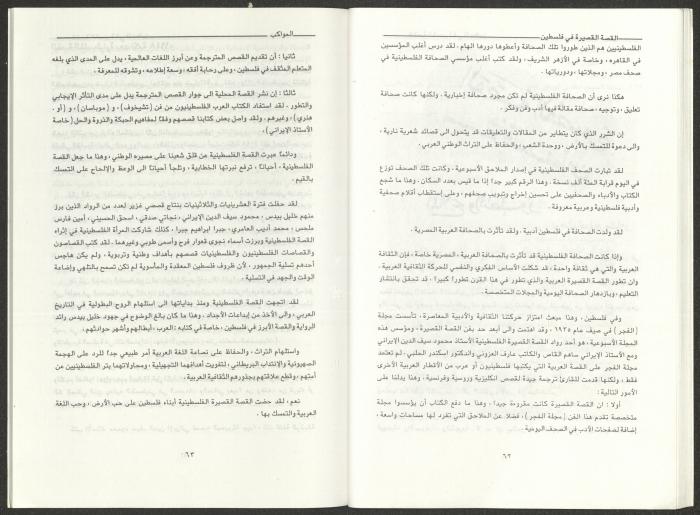 القصة القصيرة في فلسطين
الفلسطينيين هم الذين طوروا تلك الصحافة وأعطوها دورها الهام . لقد درس أغلب المؤسسين
في القاهره ، وخاصة في الأزهر الشريف ، ولقد كتب أغلب مؤسسي الصحافة الفلسطينية في
صحف مصر ، ومجلاتها ، ودورياتها .
هكذا نرى أن الصحافة الفلسطينية لم تكن مجرد صحافة إخبارية ، ولكنها كانت صحافة
تعليق ، وتوجيه ، صحافة مقالة فيها أدب وفن وفكر .
إن الشرر الذي كان يتطاير من المقالات والتعليقات قد يتحول الى قصائد شعرية نارية ،
والى دعوة للتمسك بالأرض ، ووحدة الشعب ، والحفاظ على التراث الوطني العربي .
لقد تبارت الصحف الفلسطينية في إصدار الملاحق الأسبوعية ، وكانت تلك الصحف توزع
في اليوم قرابة المئة ألف نسخة . وهذا الرقم كبير جداً إذا ما قيس بعدد السكان . وهذا ما شجع
الكتاب والأدباء والصحفيين على تحسين إخراج وتبويب صحفهم ، وعلى إستقطاب أقلام صحفية
وأدبية فلسطينية ومربية معروفة .
لقد ولدت الصحافة في فلسطين أدبية ، ولقد تأثرت بالصحافة العربية المصرية .
وإذا كانت الصحافة الفلسطينية قد تأثرت بالصحافة العربية ، المصرية خاصة ، فإن الثقافة
العربية والتي هي ثقافة واحدة ، قد شكلت الأساس الفكري والنفسي للحركة الثقافية العربية .
وان تطور القصة القصيرة العربية والذي تطور في هذا القرن تطوراً كبيراً ، قد تحقق بانتشار
التعليم ، وبازدهار الصحافة اليومية والمجلات المتخصصة .
وفي فلسطين ، وهذا مبعث اعتزاز حركتنا الثقافية والأدبية المعاصرة ، تأسست مجلة
( الفجر ) في صيف عام ١٩٢٥ . وقد اهتمت والى أبعد حد بفن القصة القصيرة ، ومؤسس هذه
المجلة الأسبوعية ، هو أحد رواد القصة القصيرة الفلسطينية الأستاذ محمود سيف الدين الإيراني
ومع الأستاذ الإيراني ساهم القاص والكاتب عارف العزوني والدكتور اسكندر الحلبي . لم تعتمد
مجلة الفجر على القصة العربية التي يكتبها فلسطينيون أو عرب من الأقطار العربية الأخرى
فقط ، ولكنها قدمت للقارئ ترجمة جيدة لقصص انكليزية وروسية وفرنسية . وهذا يدلنا على
الأمور التالية :
أولاً : ان القصة القصيرة كانت مقروءة جيداً . وهذا ما دفع الكتاب أن يؤسسوا مجلة
متخصصة تقدم هذا الفن ( مجلة الفجر ) ، فضلا عن الملاحق التي تفرد لها مساحات واسعة ،
إضافة لصفحات الأدب في الصحف اليومية .
٦٢
المواكب
ثانياً : أن تقديم القصص المترجمة ومن أبرز اللغات العالمية ، يدل على المدى الذي بلغه
المتعلم المثقف في فلسطين ، وعلى رحابة أفقه ، وسعة إطلاعه ، وتشوقه للمعرفة .
ثالثاً : إن نشر القصة المحلية الى جوار القصص المترجمة يدل على مدى التأثر الإيجابي
والتطور . لقد استفاد الكتاب العرب الفلسطينيون من فن ( تشيخوف ) ، و ( موباسان ) ، و ( أو .
هنري ) ، وغيرهم . ولقد واصل بعض كتابنا قصصهم وفقاً لمفاهيم الحبكة والذروة والحل ( خاصة
الأستاذ الإيراني ) .
ودائماً عبرت القصة الفلسطينية عن قلق شعبنا على مصيره الوطني ، وهذا ما جعل القصة
الفلسطينية ، أحياناً ، ترفع نبرتها الخطابية ، وتلجأ أحياناً الى الوعظ والإلحاح على التمسك
بالقيم .
لقد حفلت فترة العشرينيات والثلاثينيات بنتاج قصصي غزير لعدد من الرواد الذين برز
منهم خليل بيدس ، محمود سيف الدين الإيراني ، نجاتي صدقي ، اسحق الحسيني ، أمين فارس
ملحس ، محمد أديب العامري ، جبرا ابراهيم جبرا ، كذلك شاركت المرأة الفلسطينية في إثراء
القصة الفلسطينية وبرزت أسماء نجوى قعوار فرح وأسمى طوبي وغيرهما . لقد كتب القصاصون
والقصاصات الفلسطينيون والفلسطينيات قصصهم بأهداف وطنية وتربوية ، ولم يكن هاجس
أحدهم تسلية الجمهور . لأن ظروف فلسطين المعقدة والمأسوية لم تكن تسمح بالتلهي وإضاعة
الوقت والجهد في التسلية .
لقد اتجهت القصة الفلسطينية ومنذ بداياتها الى استلهام الروح البطولية في التاريخ
العربي ، والى الأخذ من إبداعات الأجداد . وهذا ما كان بالغ الوضوح في جهود خليل بيدس رائد
الرواية والقصة الأبرز في فلسطين ، خاصة في كتابه : العرب ، أبطالهم وأشهر حوادثهم .
واستلهام التراث ، والحفاظ على نصاعة اللغة العربية أمر طبيعي جداً للرد على الهجمة
الصهيونية والانتداب البريطاني ، لتفويت أهدافهما التجهيلية ، ومحاولاتهما بتر الفلسطينيين من
أمتهم ، وقطع علاقتهم بجذورهم الثقافية العربية .
نعم ، لقد حضت القصة القصيرة الفلسطينية أبناء فلسطين على حب الأرض ، وحب اللغة
العربية والتمسك بها .
٦٣